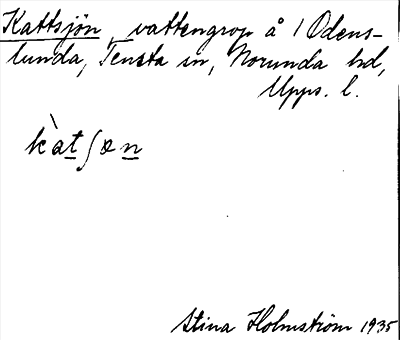 Kattsjön vattengrop å / Odens-
lunda, Tensta sn, Norunda hd,
Upps. l.
kàtʃɷn
Stina Holmström 1935